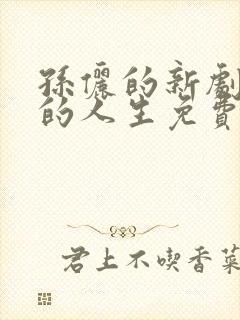 孫儷的新劇
的人生免費
君上不喫香菜